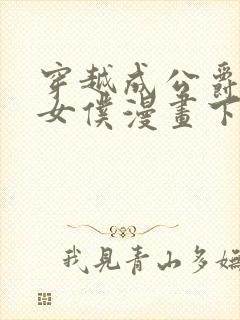 穿越成公爵
女僕漫畫下
我見青山多嫵